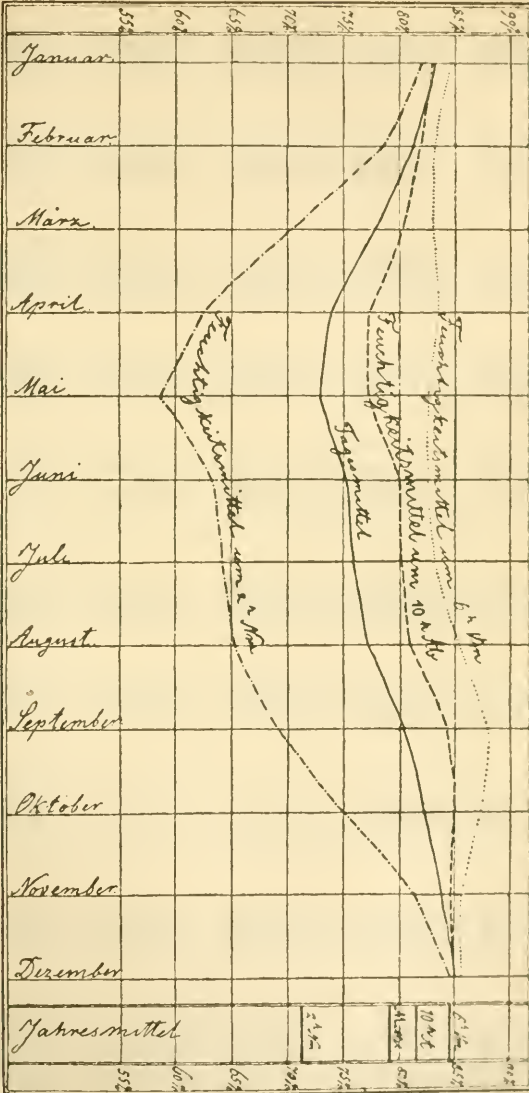 55% 60% 65% 70% 75% 80% 85% 90%
Januar.
Februar
März.
April
Mai
Juni
Juli
August.
September
Oktober
November.
Dezember
Jahresmittel
Feuchtigkeitsmittel um 2 h Nm
Tagesmittel
Feuchtigkeitsmittel um 10 h Ab
Feuchtigkeitsmittel um 6 h Vm
2 h Nm
10 h A
6 h Vm
55% 60% 65% 70% 75% 80% 85% 90%